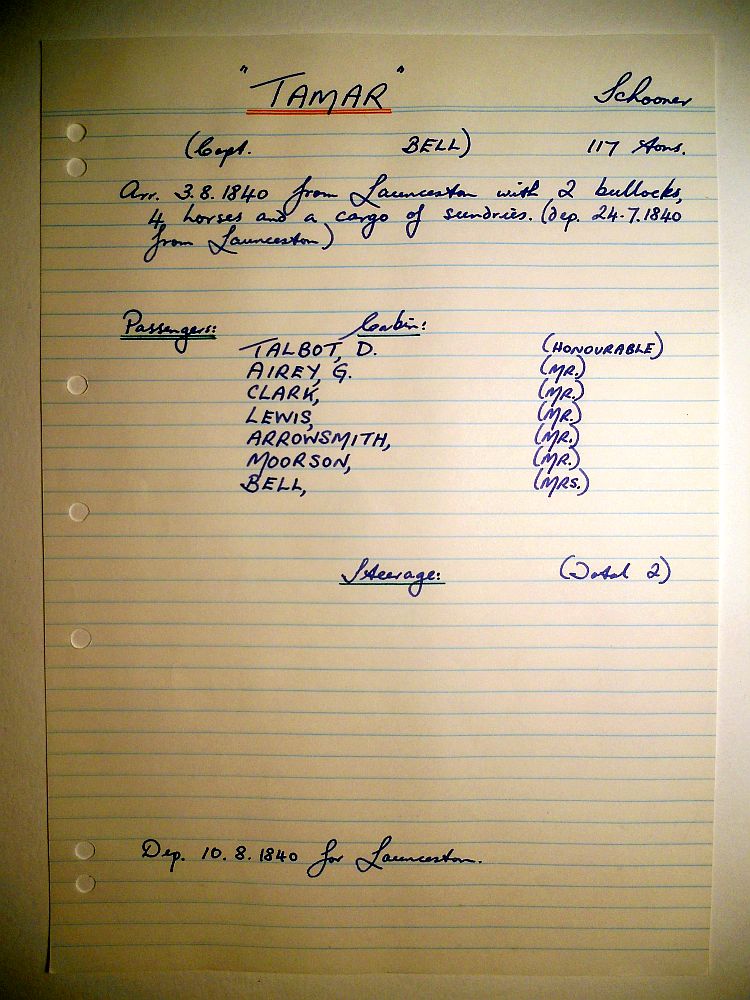 "TAMAR" Schooner
(Capt. BELL) 117 Tons.
Arr. 3.8.1840 from Launceston with 2 bullocks,
4 horses and a cargo of sundries. (Dep. 24.7.1840
from Launceston)
Passengers: Cabin:
TALBOT, D. (HONOURABLE)
AIREY, G. (MR.)
CLARK, (MR.)
LEWIS, (MR.)
ARROWSMITH, (MR.)
MOORSON, (MR.)
BELL, (MRS.)
Steerage: (Total 2)
Dep. 10.8.1840 for Launceston.